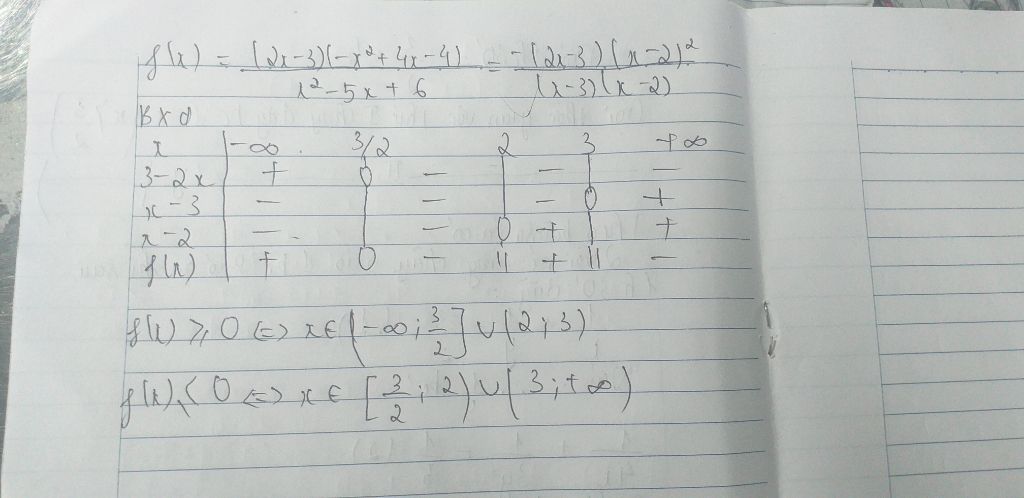 f(x) = (2x-3)(-x²+4x-4) / x²-5x+6 = -(2x-3)(x-2)² / (x-3)(x-2)
BXD
x -∞ 3/2 2 3 +∞
3-2x + 0 - | - | -
x-3 - | - | - 0 +
x-2 - | - 0 + | +
f(x) + 0 - || + || -
f(x) ⩾ 0 ⇔ x ∈ (-∞; 3/2] ∪ (2; 3)
f(x) ⩽ 0 ⇔ x ∈ [3/2; 2) ∪ (3; +∞)